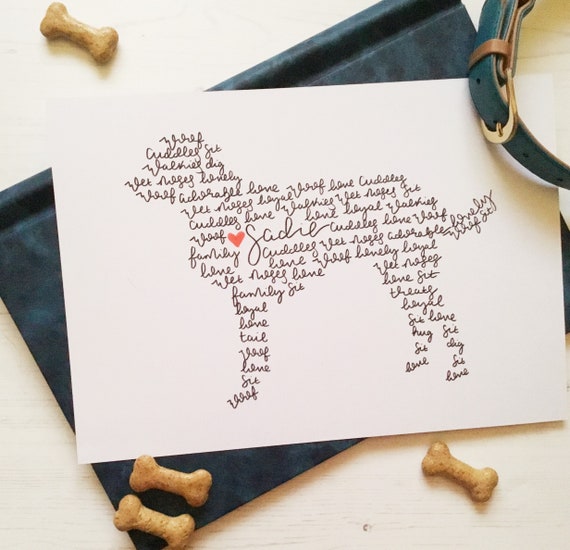 woof
cuddles sit
walkies dig
wet noses lovely
woof adorable love woof love cuddles
wet noses loyal walkies wet noses sit
cuddles love love loyal walkies
woof Sadie cuddles love woof lovely
family cuddles wet noses adorable woof sit
love love woof lovely loyal
wet noses love wet noses
family sit love sit
loyal treats
love loyal
tail sit love
woof hug sit
love sit dig
sit love sit
woof love